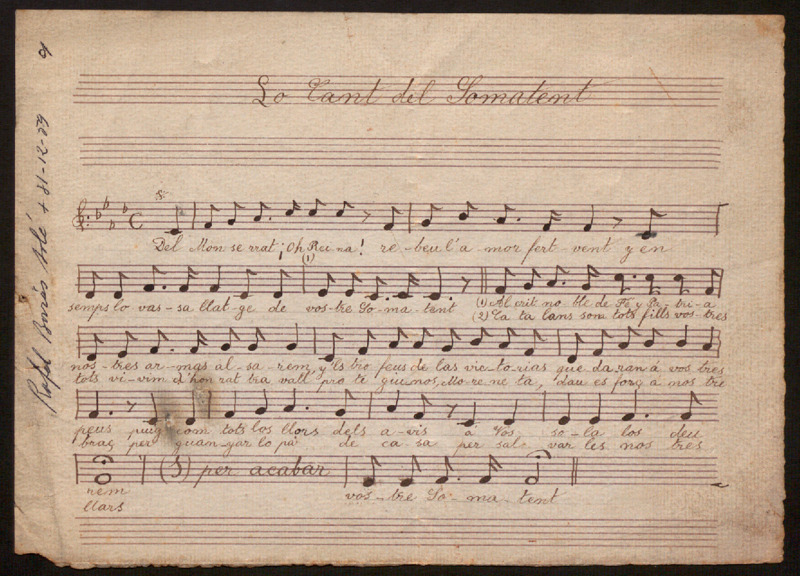 Lo Cant del Somatent
Del Mon se rrat ¡Oh Rei-na! re-beu l'a-mor fert-vent y en
(1)
semps lo vas-sa llat-ge de vos-tre So-ma-tent (1) Al crit no-ble de Fé y Pa-tri-a
(2) Ca ta lans som tots fills vos-tres
nos-tres ar-mas al-sa-rem, y ls tro feus de las vic-to-rias que da-ran á vos tres
tots vi-vim d'hon rat tra vall pro te giu nos, Mo-re ne ta, dau es forç a nos tre
peus puig com tots los llors dels a-vis á Vos so-la los deu
braç per guan-yar lo pá de ca-sa per sal-var les nos tres
rem (3) per acabar
llars vos-tre So-ma-tent
+ 31-12-39